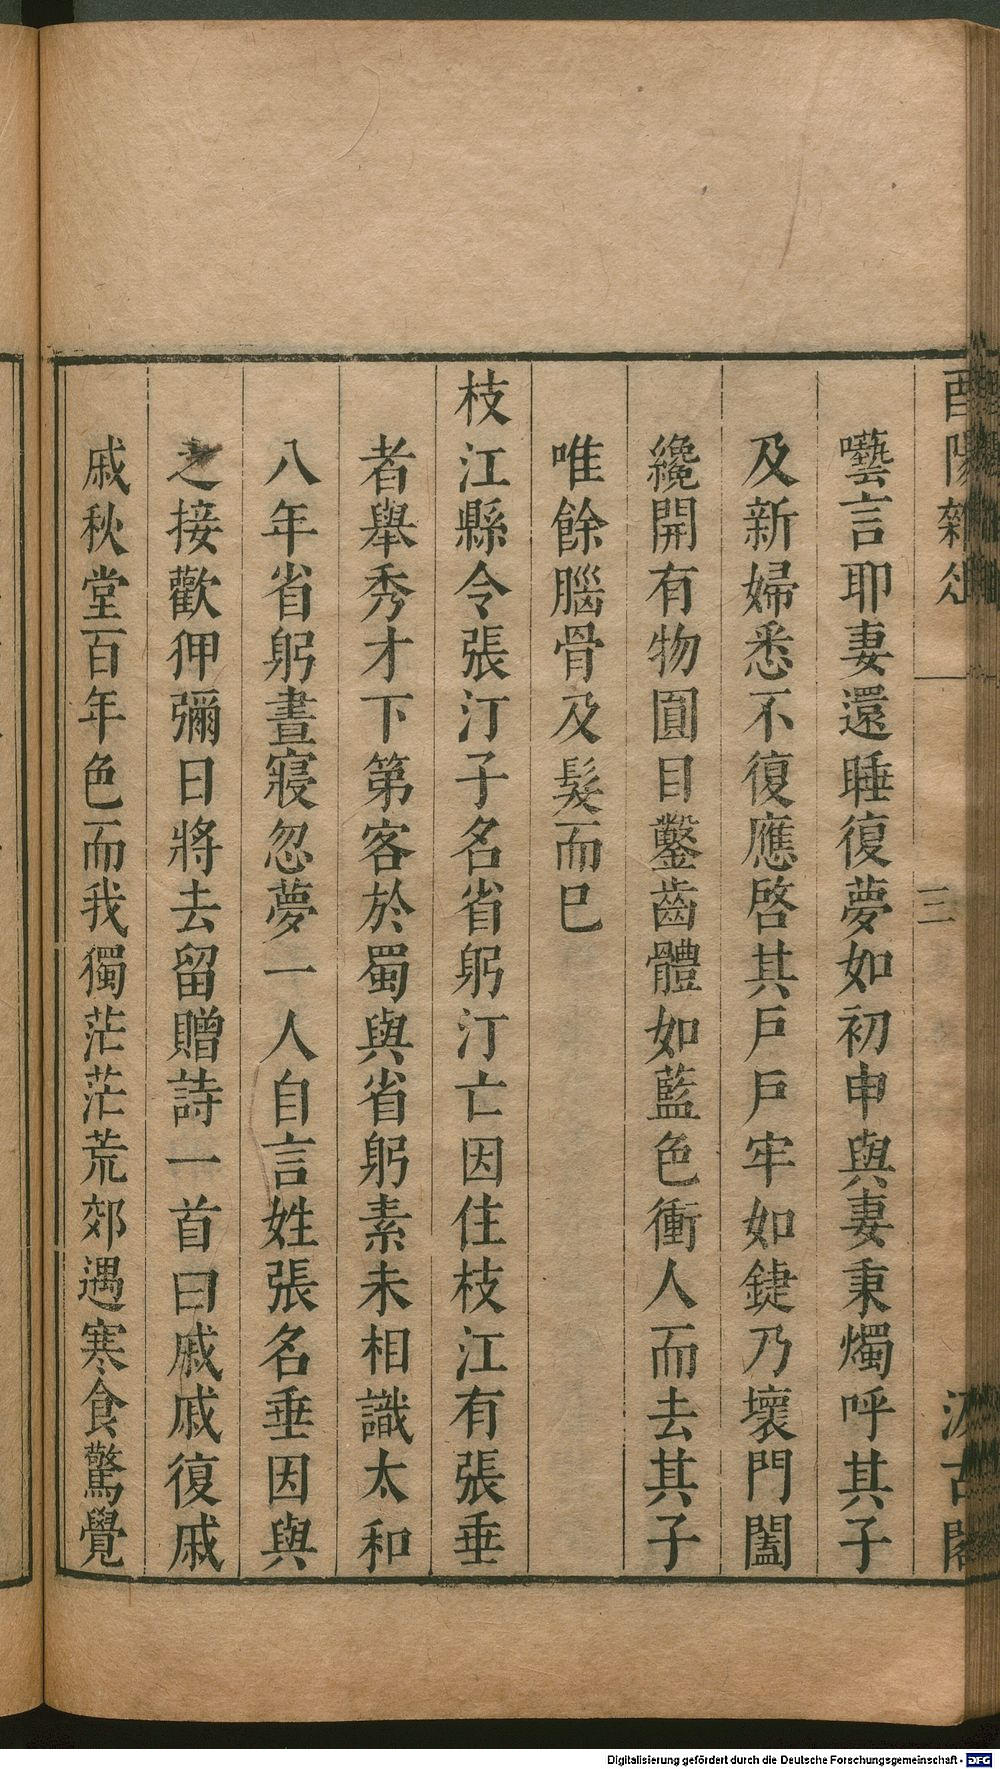 酉陽雜俎
三
汲古閣
囈言耶妻還睡復夢如初申與妻秉燭呼其子
及新婦悉不復應啓其戶戶牢如鍵乃壞門闔
纔開有物圓目鑿齒體如藍色衝人而去其子
唯餘腦骨及髮而巳
枝江縣令張汀子名省躬汀亡因住枝江有張垂
者舉秀才下第客於蜀與省躬素未相識太和
八年省躬晝寢忽夢一人自言姓張名垂因與
之接歡狎彌日將去留贈詩一首曰戚戚復戚
戚秋堂百年色而我獨茫茫荒郊遇寒食驚覺
Digitalisierung gefördert durch die Deutsche Forschungsgemeinschaft - DFG